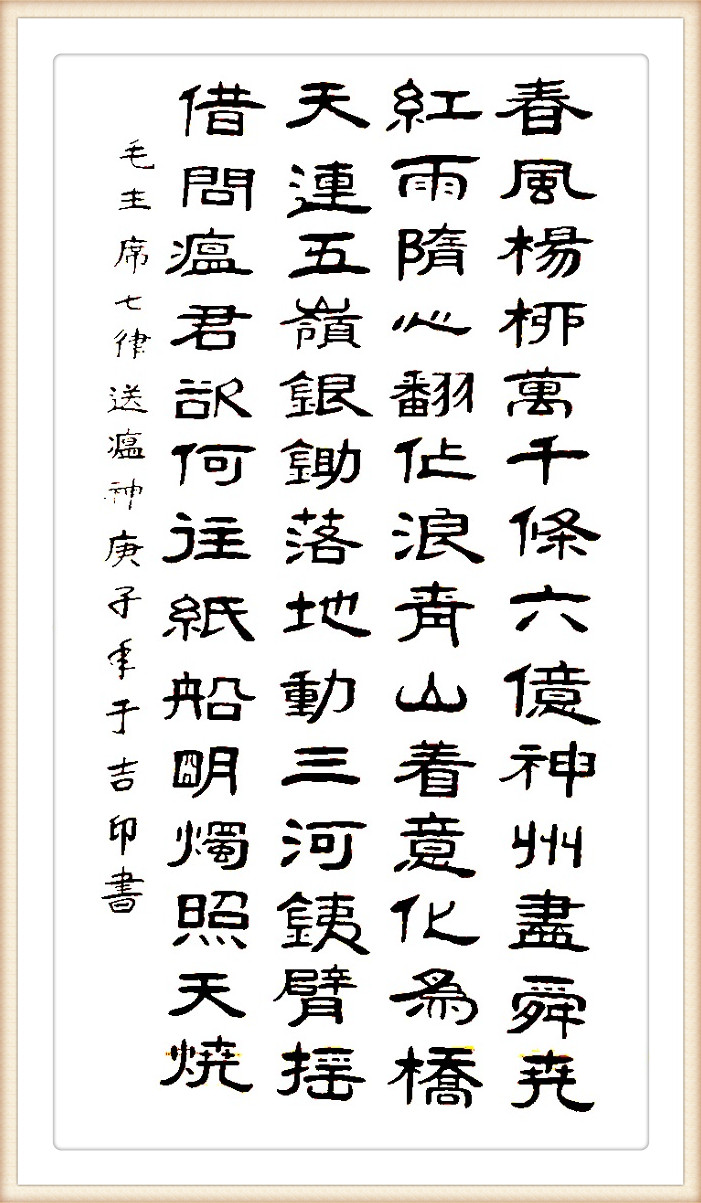 春風楊柳萬千條六億神州盡舜堯
紅雨隋心翻作浪青山着意化為橋
天連五嶺銀鋤落地動三河銕臂摇
借問瘟君欲何往紙船明燭照天燒
毛主席七律送瘟神庚子年于吉印書